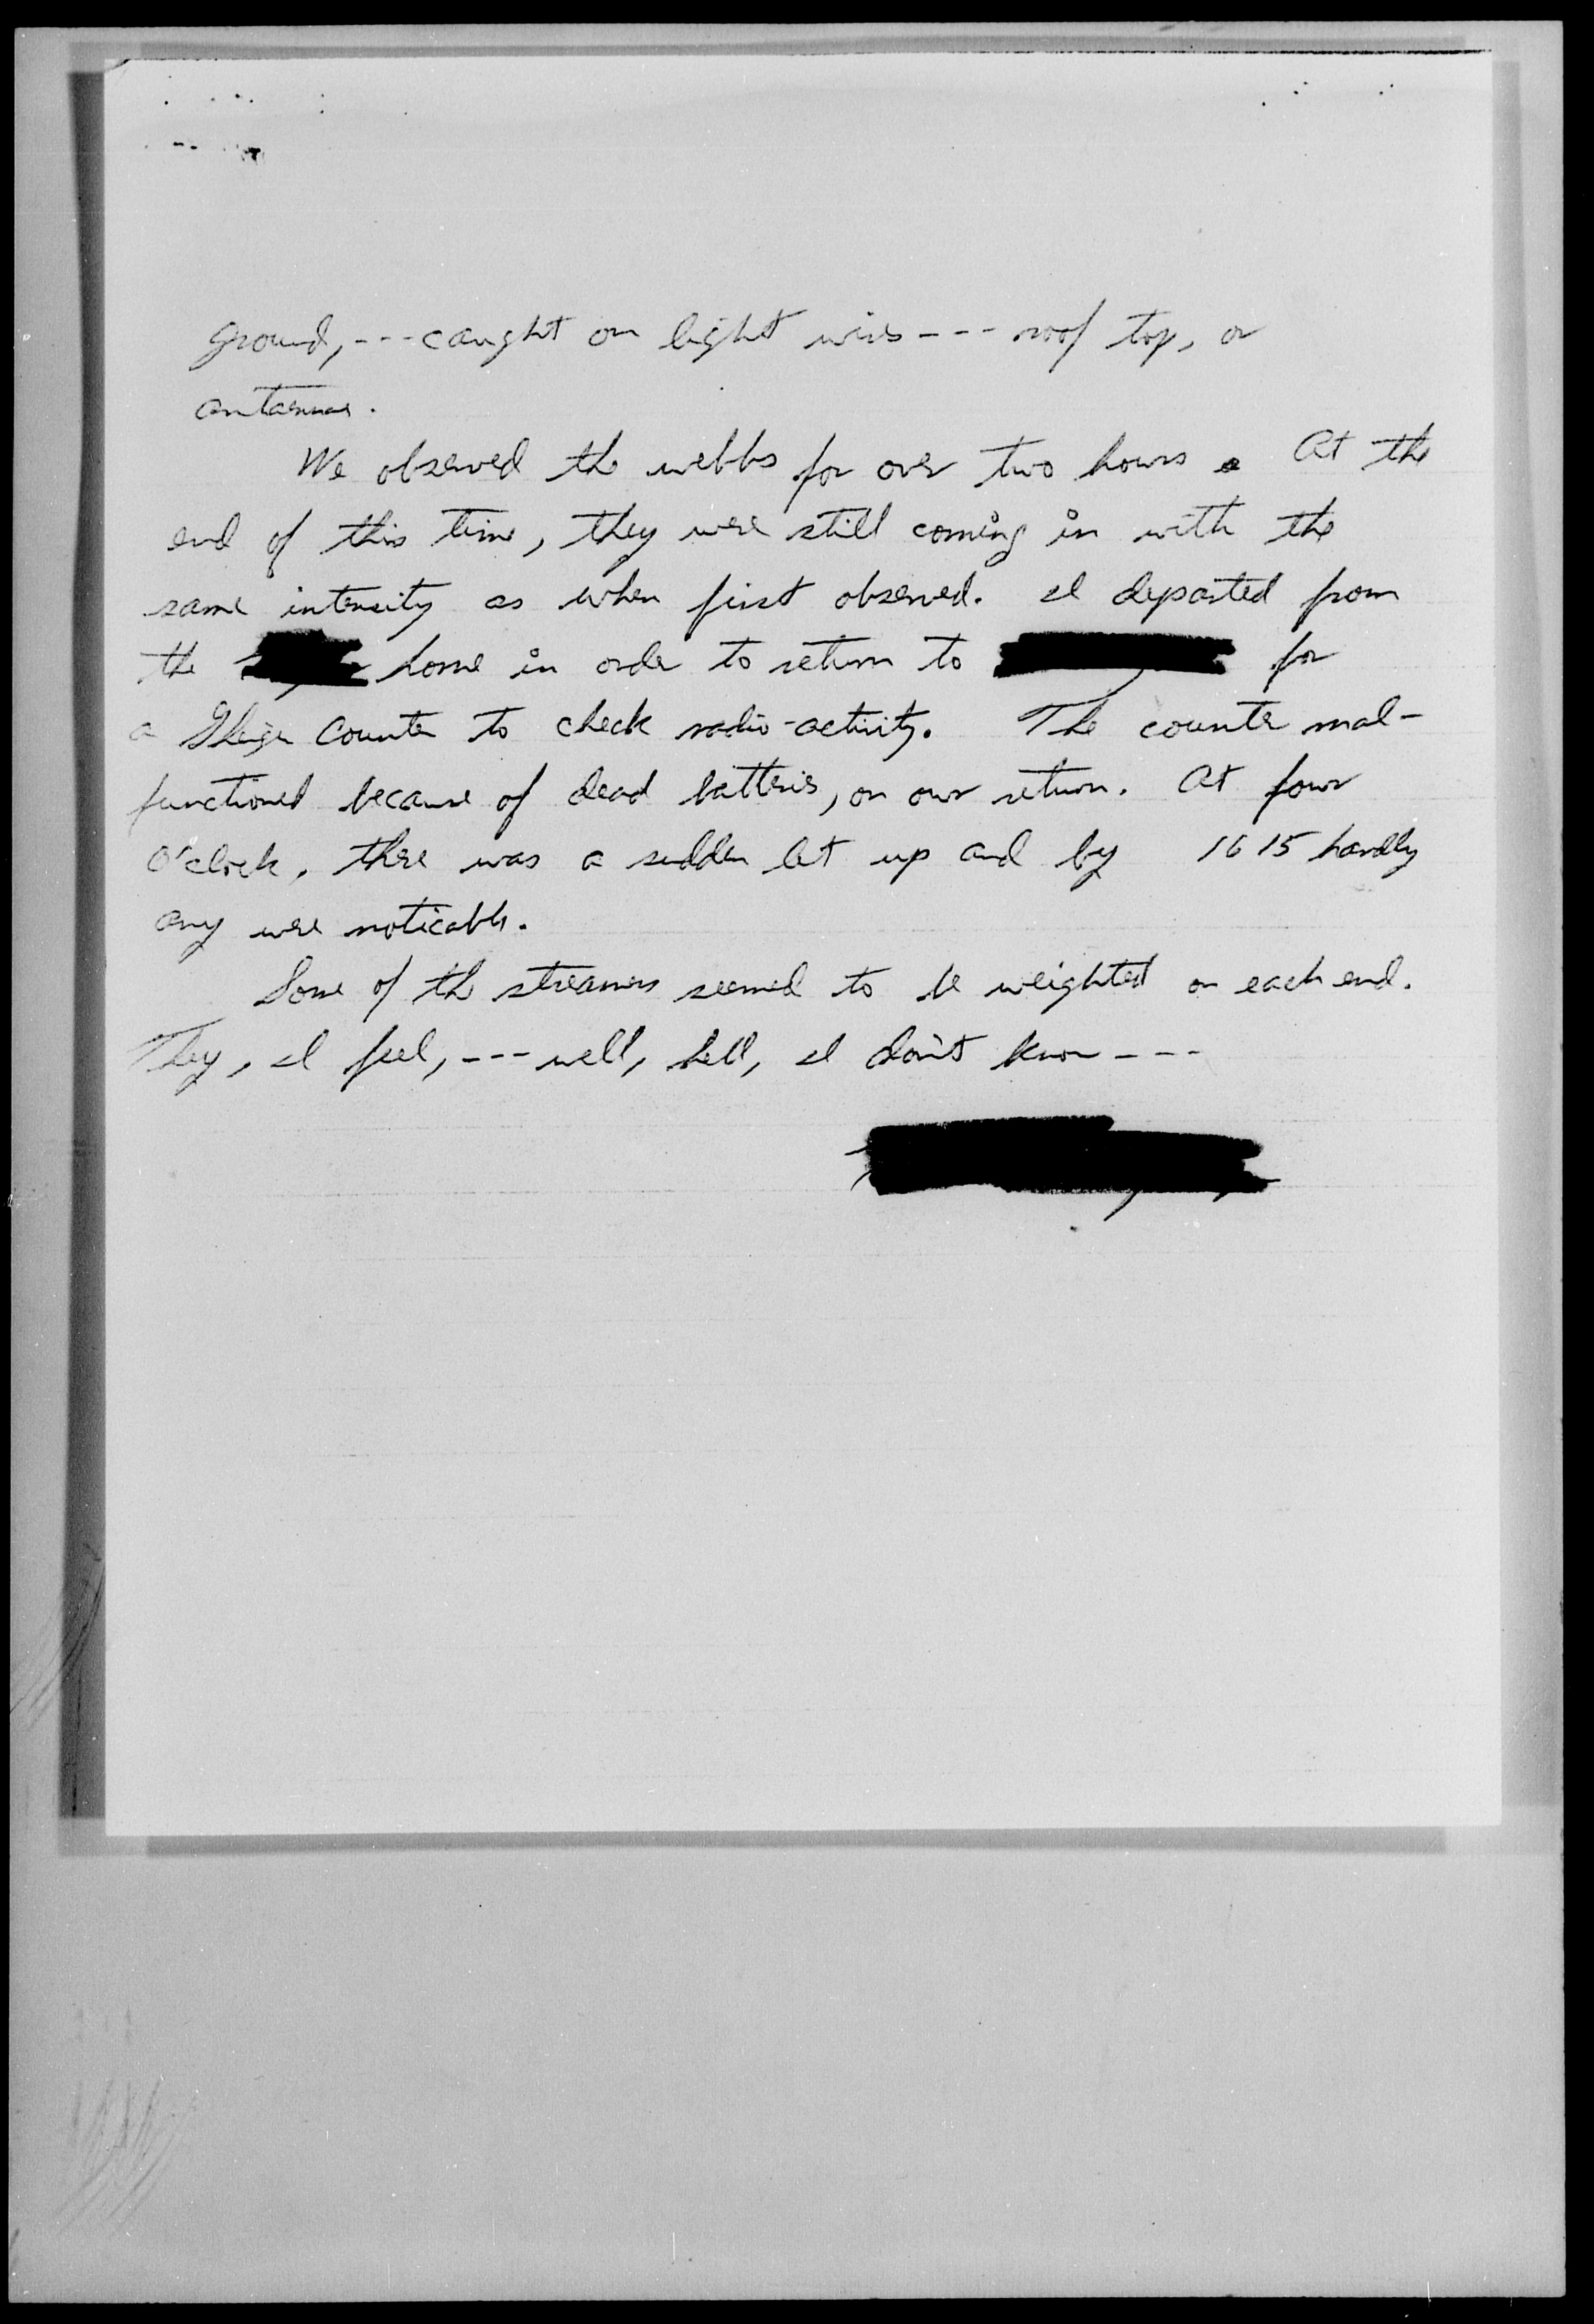 ground, --- caught on light wires --- roof top, or
antennas.
We observed the webbs for over two hours. At the
end of this time, they were still coming in with the
same intensity as when first observed. I departed from
the home in order to return to for
a Gheiger Counter to check radio-activity. The counter mal-
functioned because of dead batteries, on our return. At four
O'clock, there was a sudden let up and by 1615 hardly
any were noticable.
Some of the streamers seemed to be weighted on each end.
They, I feel, --- well, hell, I don't know ---